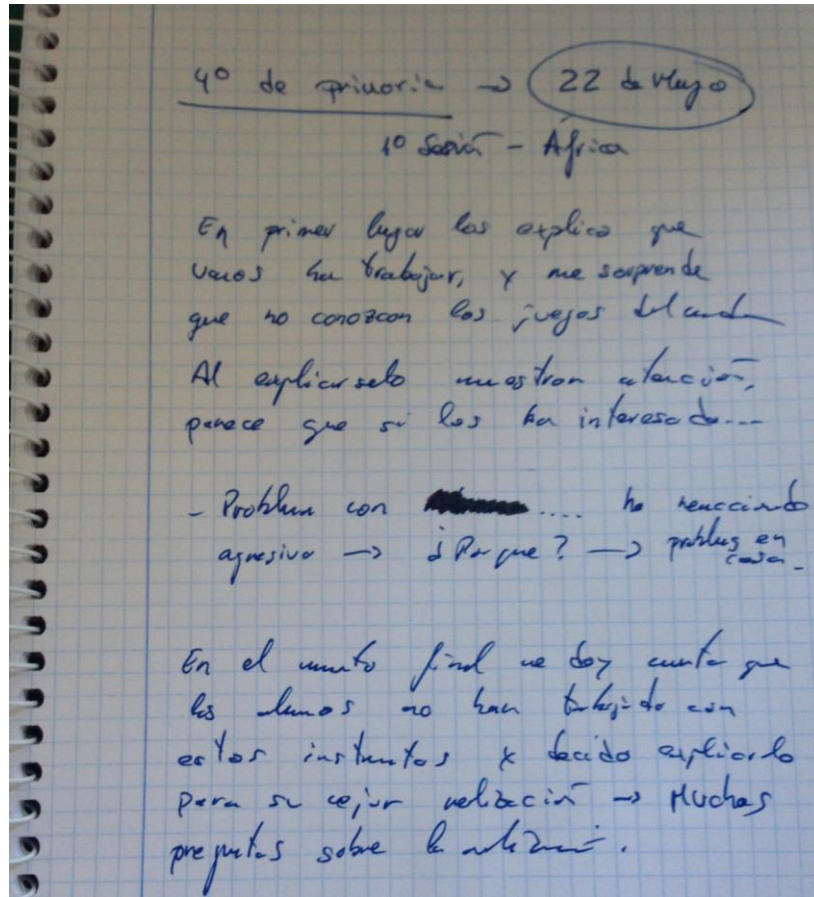 4º de primaria → 22 de Mayo
1º Sesión - África
En primer lugar les explico que
vamos ha trabajar, y me sorprende
que no conozcan los juegos del
Al explicarselo muestran atención,
parece que si les ha interesado...
- Problema con .... ha reaccionado
agresivo → ¿Por que? → problemas en
casa.
En el momento final me doy cuenta que
los alumnos no han trabajado con
estos instrumentos y decido explicarlo
para su mejor realización → Muchas
preguntas sobre la